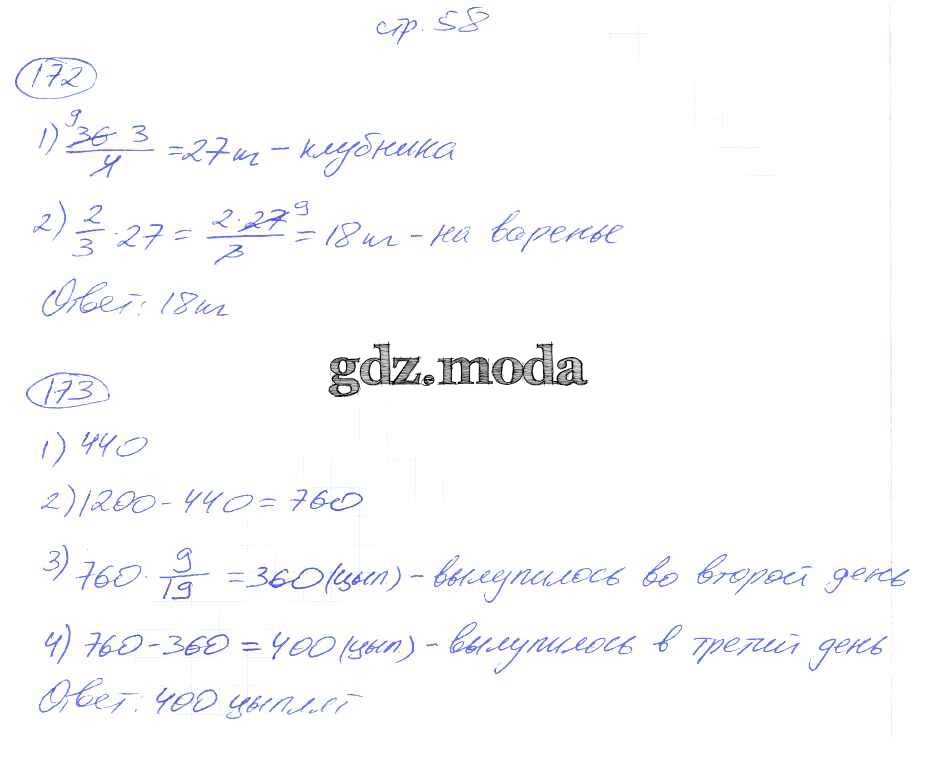 стр. 58
172
1) 9 36 3 / 4 = 27 кг - клубника
2) 2/3 · 27 = 2·27 9 / 3 = 18 кг - на варенье
Ответ: 18 кг
gdz.moda
173
1) 440
2) 1200 - 440 = 760
3) 760 · 9/19 = 360 (цып) - вылупилось во второй день
4) 760 - 360 = 400 (цып) - вылупилось в третий день
Ответ: 400 цыплят